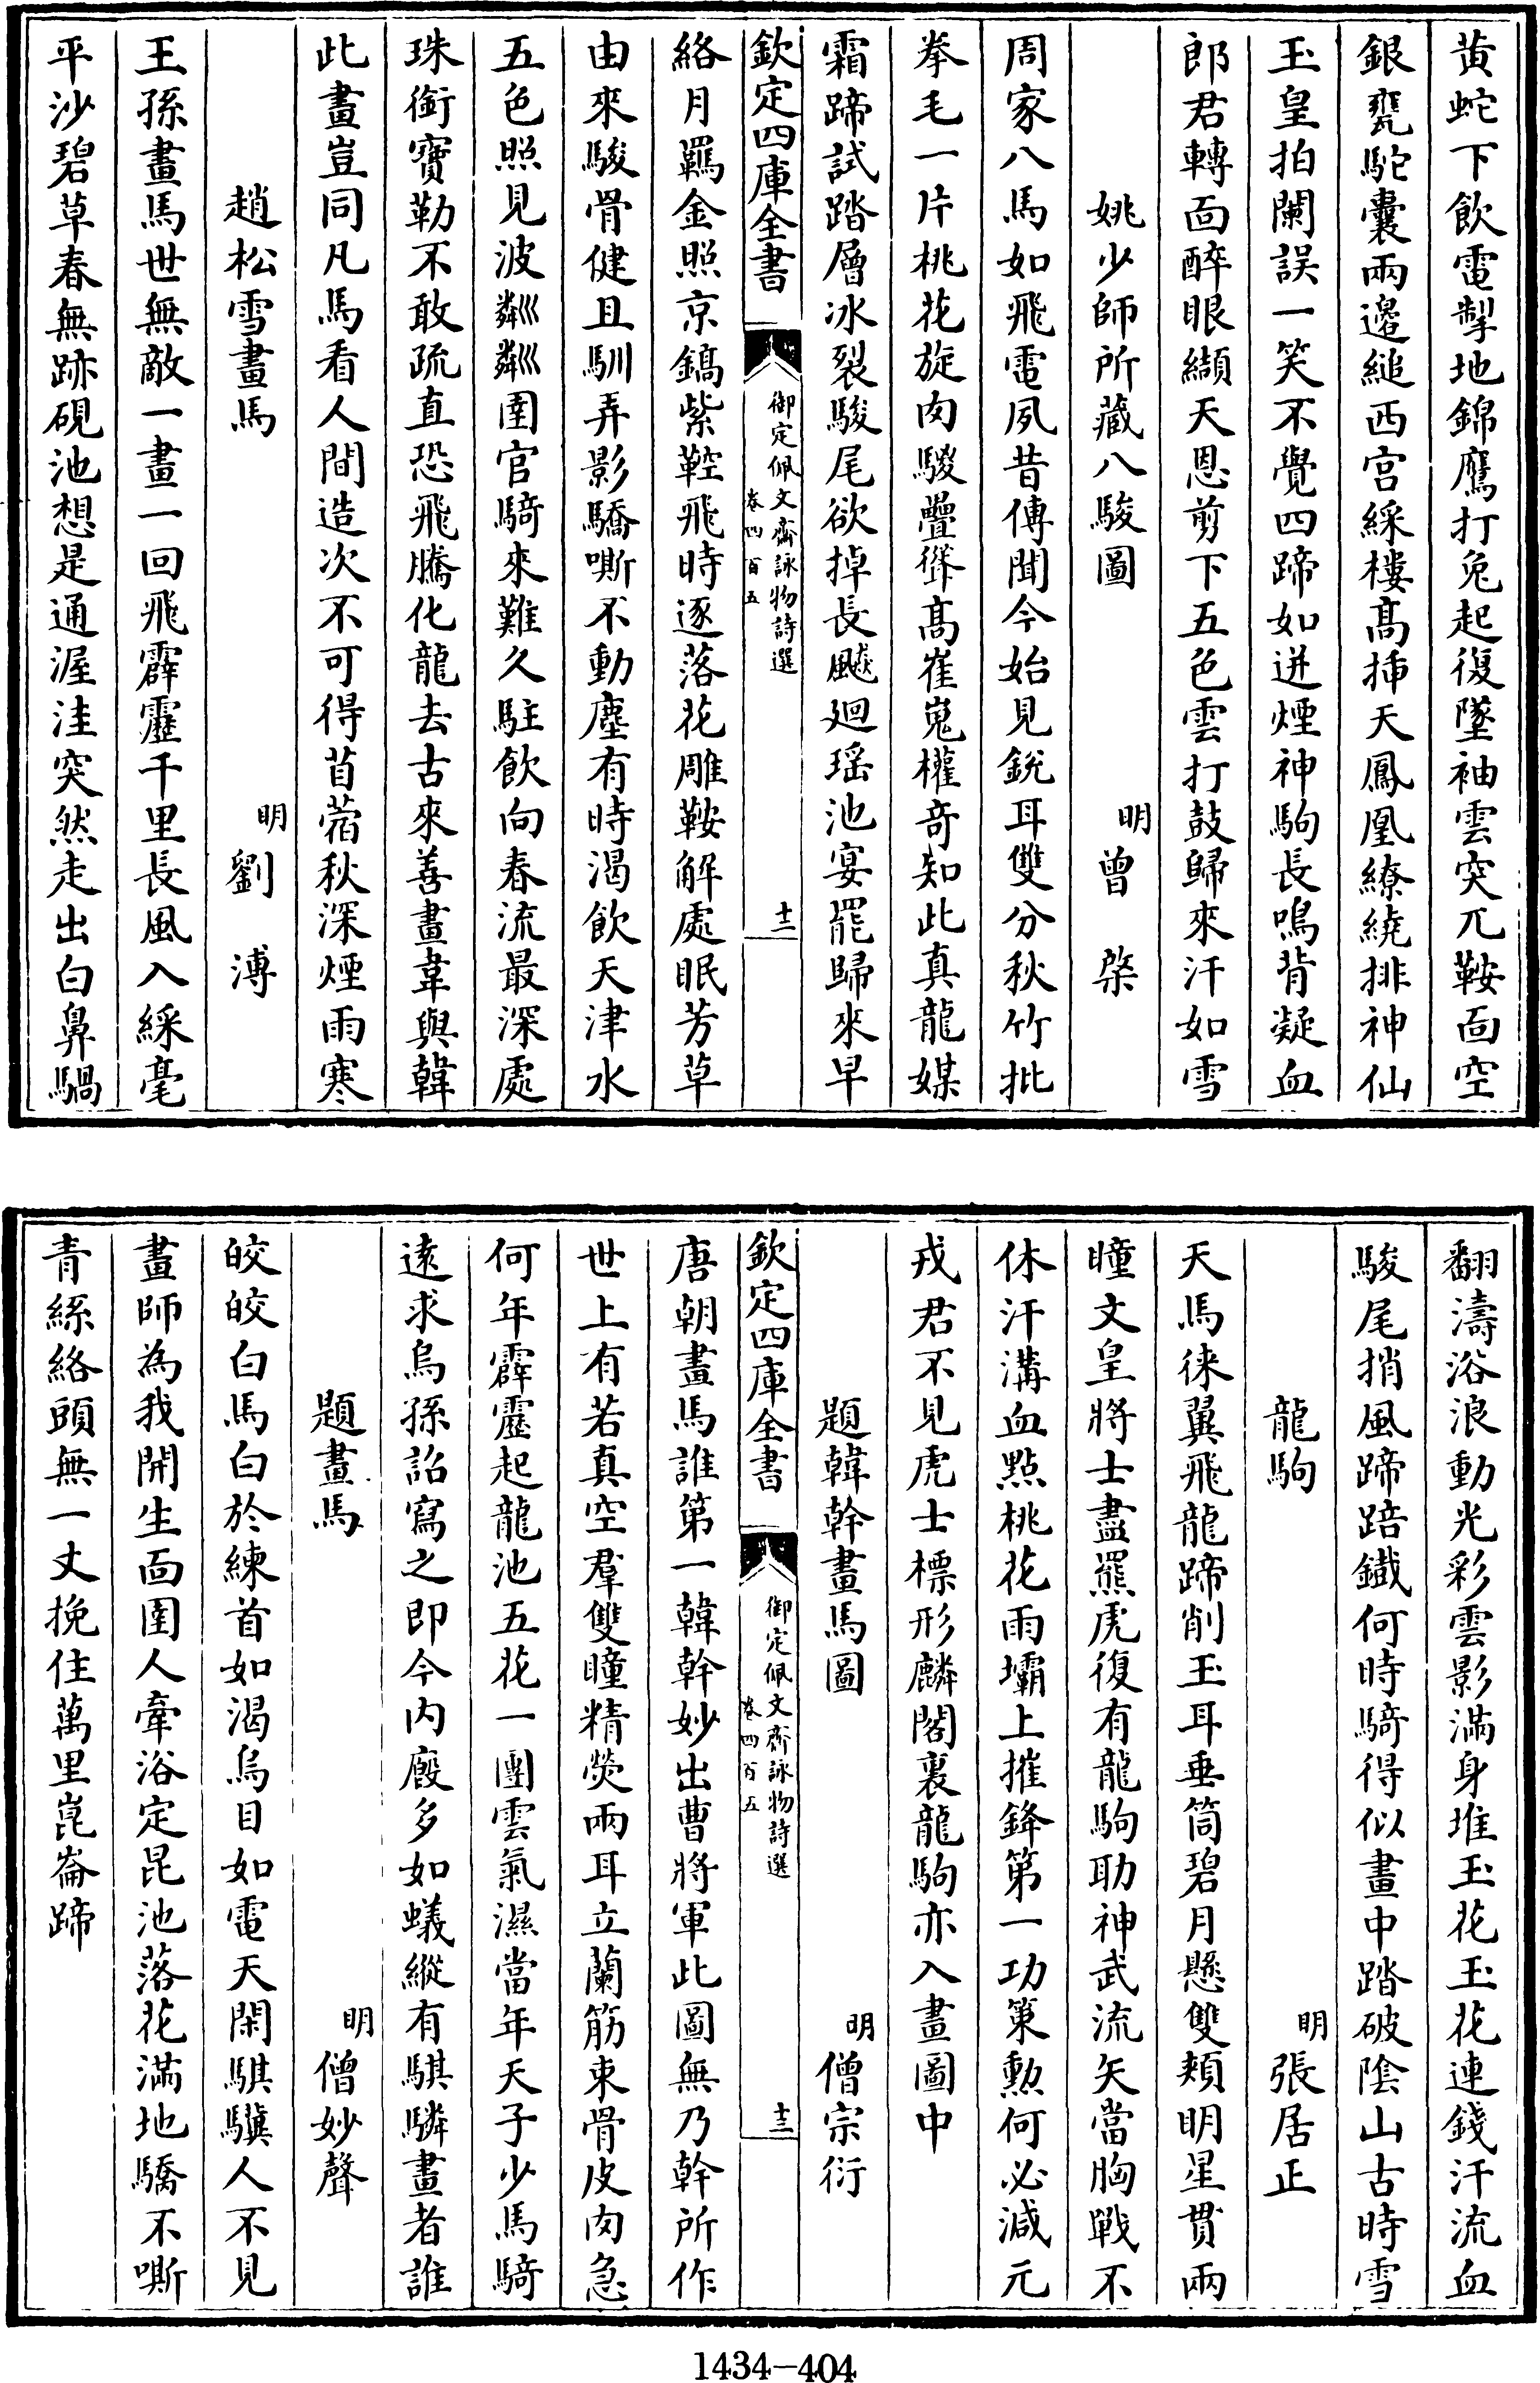 黄蛇下飲電掣地錦鷹打兔起復墜袖雲突兀鞍面空
銀甕駝囊兩邊縋西宫綵樓髙揷天鳳凰繚繞排神仙
玉皇拍闌誤一笑不覺四蹄如迸煙神駒長鳴背凝血
郎君轉面醉眼纈天恩剪下五色雲打鼓歸來汗如雪
姚少師所藏八駿圖　明曾棨
周家八馬如飛電夙昔傳聞今始見鋭耳雙分秋竹批
拳毛一片桃花旋肉騣疊聳髙崔嵬權奇知此真龍媒
霜蹄試踏層冰裂駿尾欲掉長飈廻瑶池宴罷歸來早
欽定四庫全書　御定佩文齋詠物詩選　卷四百五　十二
絡月羈金照京鎬紫鞚飛時逐落花雕鞍解處眠芳草
由來駿骨健且馴弄影驕嘶不動塵有時渴飲天津水
五色照見波粼粼圉官騎來難久駐飲向春流最深處
珠銜寶勒不敢疏直恐飛騰化龍去古來善畫韋與韓
此畫豈同凡馬看人間造次不可得苜蓿秋深煙雨寒
趙松雪畫馬　明劉溥
王孫畫馬世無敵一畫一回飛霹靂千里長風入綵毫
平沙碧草春無跡硯池想是通渥洼突然走出白鼻騧
翻濤浴浪動光彩雲影滿身堆玉花玉花連錢汗流血
駿尾捎風蹄踣鐵何時騎得似畫中踏破陰山古時雪
龍駒　明張居正
天馬徠翼飛龍蹄削玉耳垂筒碧月懸雙頰明星貫兩
瞳文皇將士盡羆虎復有龍駒助神武流矢當胸戰不
休汗溝血點桃花雨壩上摧鋒第一功策勲何必減元
戎君不見虎士標形麟閣裏龍駒亦入畫圖中
題韓幹畫馬圖　明僧宗衍
欽定四庫全書　御定佩文齋詠物詩選　卷四百五　十三
唐朝畫馬誰第一韓幹妙出曹將軍此圖無乃幹所作
世上有若真空羣雙瞳精熒兩耳立蘭筋束骨皮肉急
何年霹靂起龍池五花一團雲氣濕當年天子少馬騎
遠求烏孫詔寫之即今内廏多如蟻縱有騏驎畫者誰
題畫馬　明僧妙聲
皎皎白馬白於練首如渴烏目如電天閑騏驥人不見
畫師為我開生面圉人牽浴定昆池落花滿地驕不嘶
青絲絡頭無一丈挽住萬里崑崙蹄
1434-404